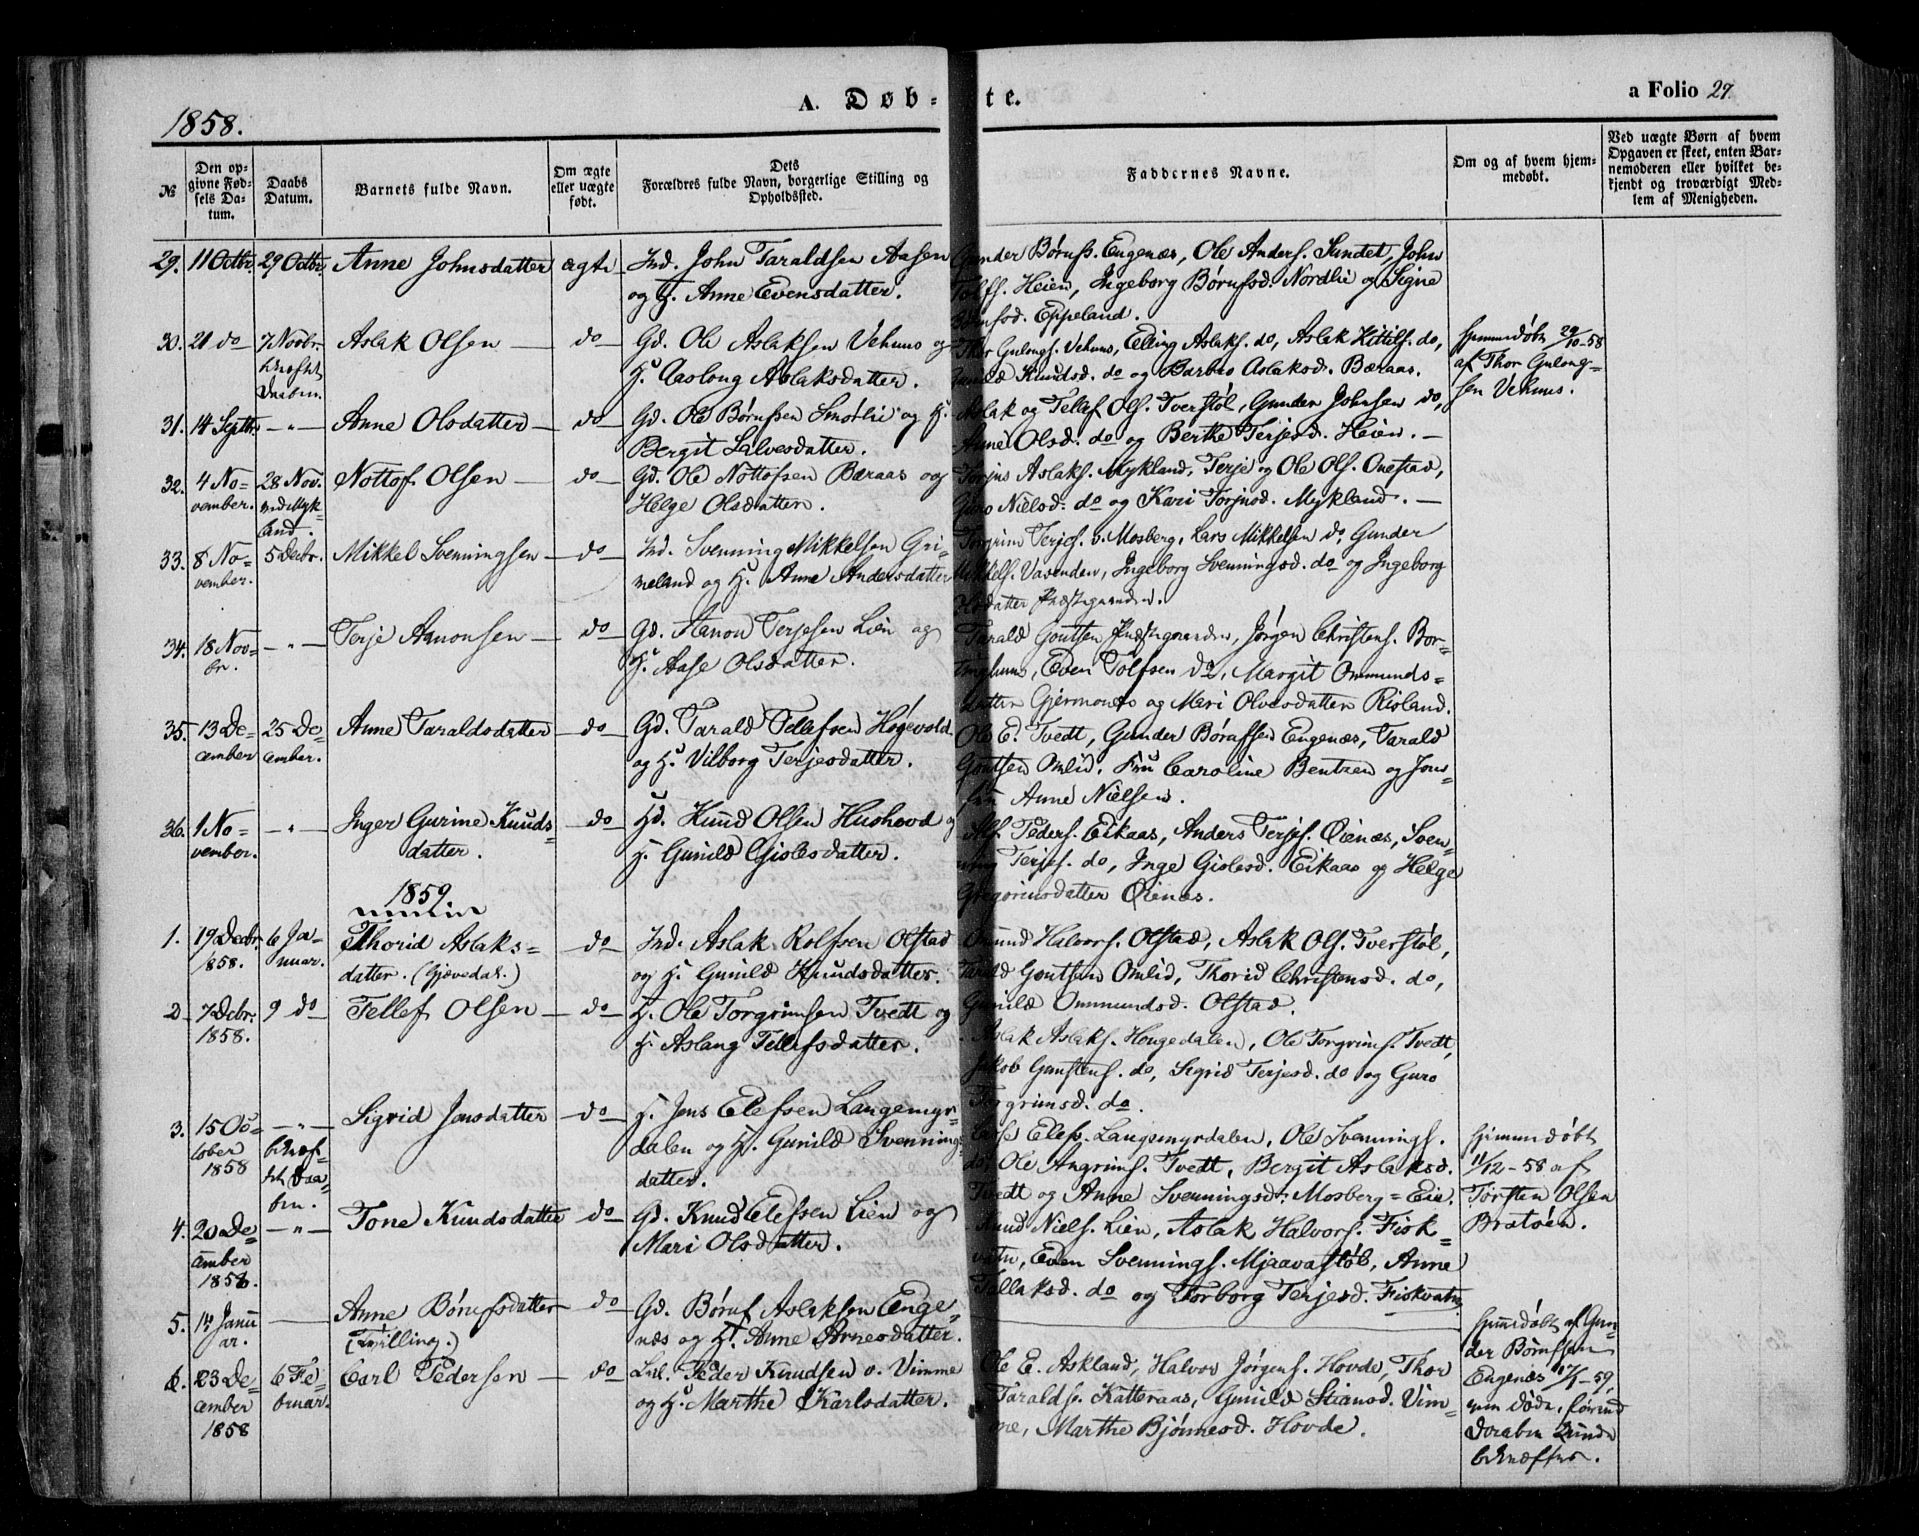 1858.
A. Døb-
te.
a Folio 27.
№
Den op-
givne Fød-
sels Da-
tum.
Daabs
Datum.
Barnets fulde Navn.
Om ægte
eller uægte
født.
Dets
Forældres fulde Navn, borgerlige Stilling og
Opholdssted.
Faddernes Navne.
Om og af hvem hjem-
medøbt.
Ved uægte Børn af hvem
Opgaven er skeet, enten Bar-
nemoderen eller hvilket be-
kjendt og troværdigt Med-
lem af Menigheden.
29. 11 Octbr. 29 Octbr. Anne Johnsdatter ægte Ind. John Taraldsen Aasen
og H. Anne Evensdatter.
Gunder Børufs. Engenæs, Ole Anders. Sundet, John
Tolfs. Heien, Ingeborg Børufsd. Nordlie og Signe
Børufsd. Eppeland.
30. 21 do 7 Novbr.
bekræft
Daaben.
Aslak Olsen — do — Gd. Ole Aslaksen Vehuus og
H. Aaslong Aslaksdatter.
Thor Gulongs. Vehuus, Elling Aslaks. do, Aslak Kittils. do,
Gunild Knudsd. do og Barbro Aslaksd. Bæraas.
Hjemmedøbt 29/10-58
af Thor Gulong-
sen Vehuus.
31. 14 Septbr. -"- Anne Olsdatter — do — Gd. Ole Børufsen Smørlie og H.
Bergit Salvesdatter.
Aslak og Tellef Ols. Tverstøl, Gunder Johnsen do,
Anne Olsd. do og Berthe Terjesd. Heien. —
32. 4 No-
vember.
28 Nov.
ved Myk-
land.
Nottof Olsen — do — Gd. Ole Nottofsen Bæraas og
Helge Olsdatter.
Torjus Aslaks. Mykland, Terje og Ole Ols. Onestad,
Guro Nielsd. do og Kari Torjusd. Mykland. —
33. 8 No-
vember.
5 Decbr. Mikkel Svenningsen — do — Ind. Svenning Mikkelsen Gri-
meland og H. Anne Andersdatter
Torgrim Terjes. v. Mosberg, Lars Mikkelsen do Gunder
Mikkels. Vasenden, Ingeborg Svenningsd. do og Ingeborg
Olsdatter Præstegaarden.
34. 18 Nov-
br.
-"- Terje Aanonsen — do Gd. Aanon Terjesen Lien og
H. Aase Olsdatter.
Tarald Gontsen Præstegaarden, Jørgen Christens. Bor-
, Even Tolfsen do, Margit Ommunds-
datter Gjermones og Mari Olvesdatter Risland.
35. 13 De-
cember
25 De-
cember.
Anne Taraldsdatter — do — Gd. Tarald Tellefsen Høgevold
og H. Vilborg Terjesdatter.
Ole E. Tvedt, Gunder Børufsen Engenæs, Tarald
Gontsen Omlid, Fru Caroline Bentzen og Jom-
fru Anne Nielsen.
36. 1 No-
vember.
-"- Inger Gurine Knuds-
datter.
do Hd. Knud Olsen Hushovd og
H. Gunild Gislesdatter.
Alf Peders. Eikaas, Anders Terjes. Øienæs, Sven-
ning Terjes. do, Inge Gislesd. Eikaas og Helge
Gregoriusdatter Øienæs.
1859
1. 19 Decbr.
1858.
6 Ja-
nuar.
Thorid Aslaks-
datter. (Gjøvedal.)
do Ind. Aslak Rolfsen Olstad
og H. Gunild Knudsdatter.
Omund Halvors. Olstad, Aslak Ols. Tverstøl,
Tarald Gontsen Omlid, Thorid Christensd. do,
Gunild Ommundsd. Olstad.
2 7 Decbr.
1858.
9 do Tellef Olsen — do — H. Ole Torgrimsen Tvedt og
H. Aslaug Tellefsdatter.
Aslak Aslaks. Hougedalen, Ole Torgrims. Tvedt,
Jakob Gunstens. do, Sigrid Terjesd. do og Guro
Torgrimsd. do.
3. 15 Oc-
tober
1858
-"-
bekræf-
tet Daa-
ben.
Sigrid Jensdatter — do — H. Jens Elefsen Langemyr-
dalen og H. Gunild Svennings-
datter.
Elefs. Langemyrdalen, Ole Svennings.
do, Ole Angrims. Tvedt, Bergit Aslaksd.
Tvedt og Anne Svenningsd. Mosberg-Eie.
Hjemmedøbt
11/12-58 af
Torsten Olsen
Bratoen.
4. 20 De-
cember
1858.
-"- Tone Knudsdatter do Gd. Knud Elefsen Lien og
Mari Olsdatter.
Knud Niels. Lien, Aslak Halvors. Fisk-
vatn, Even Svennings. Mjaavastøl, Anne
Tallaksd. do og Torborg Terjesd. Fiskvatn
5. 14 Janu
ar.
— Anne Børufsdatter
(Tvilling.)
do Gd. Børuf Aslaksen Enge-
næs og H. Anne Arnesdatter.
Hjemmedøbt af Gun-
der Børufsen
Engenæs 17/1-59,
som døde, førend
Daaben kunde
bekræftes.
6. 23 De-
cember
1858
6 Fe-
bruar.
Carl Pedersen — do Lnl. Peder Knudsen o. Vimme
og H. Marthe Karlsdatter.
Ole E. Askland, Halvor Jørgens. Hovde, Thor
Taralds. Katteraas, Gunild Stiansd. Vim-
me, Marthe Bjønnesd. Hovde.